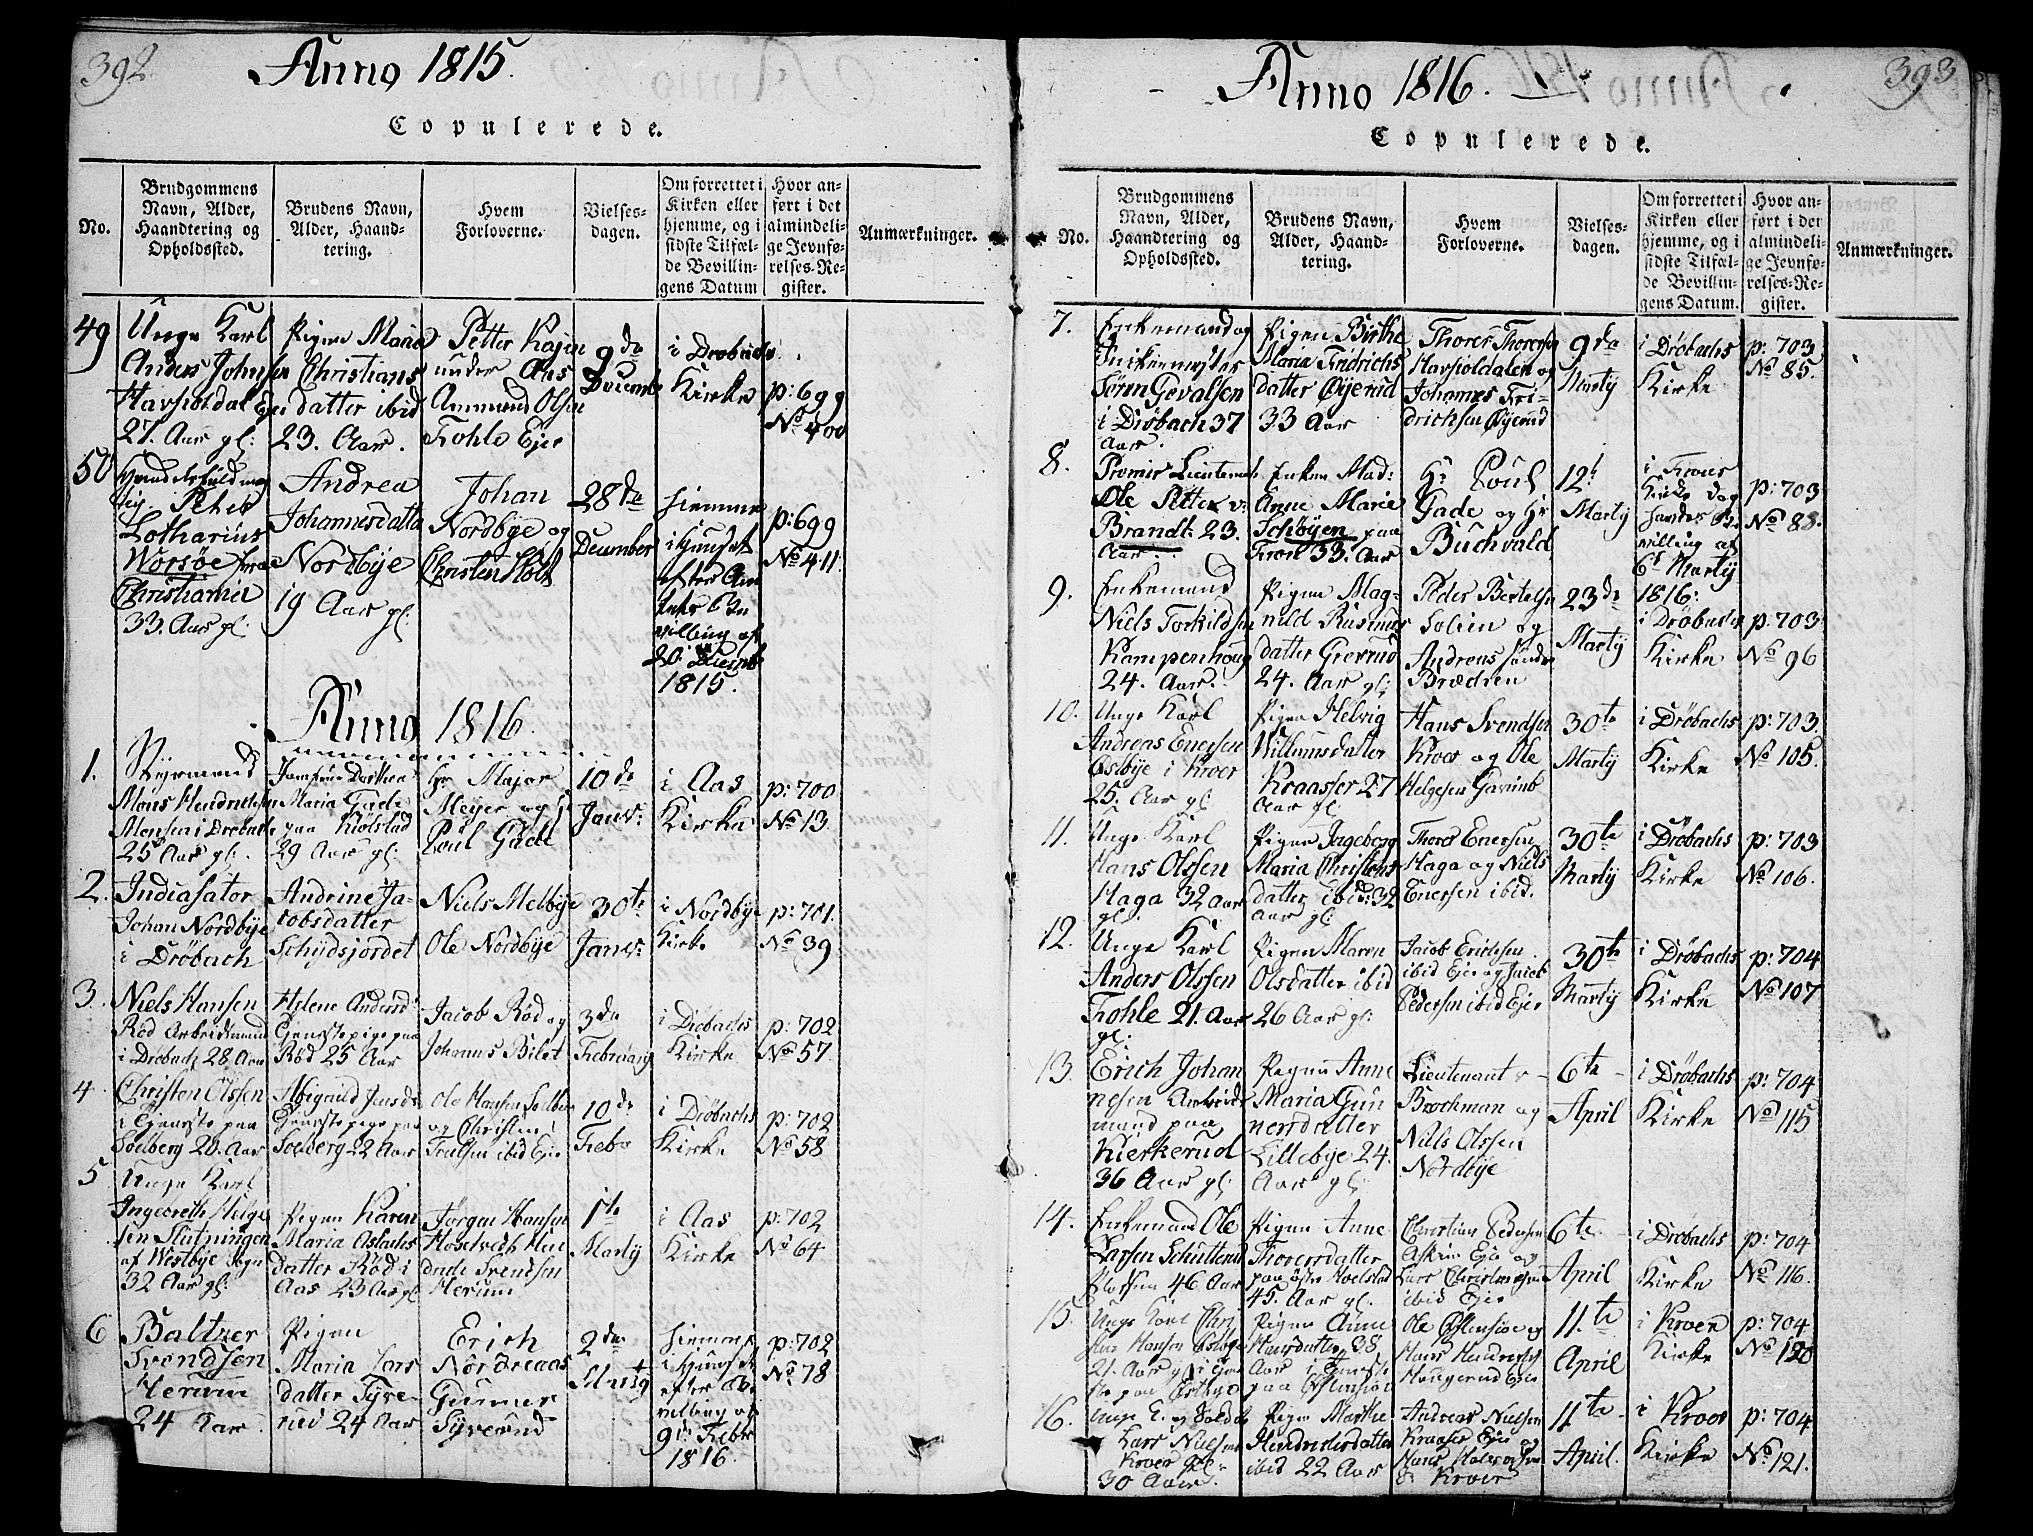 392.
Anno 1815.
Copulerede.
No.
Brudgommens
Navn, Alder,
Haandtering og
Opholdssted.
Brudens Navn,
Alder, Haand-
tering.
Hvem
Forloverne.
Vielses-
dagen.
Om forrettet i
Kirken eller
hjemme, og i
sidste Tilfæl-
de Bevillin-
gens Datum
Hvor an-
ført i det
almindeli-
ge Jevnfø-
relses-Re-
gister.
Anmærkninger.
49
Unge Karl
Anders Johnsen
Havsioldal Eje
27. Aar gl:
Pigen Maria
Christians
datter ibid
23. Aar.
Petter Kajen
under Aas
Ammund Olsen
Frohle Eje
9de
Decemb
i Drøbachs
Kirke
p: 699
No 400
50
Peter
Lotharius
Worsøe fra
Christiania
33. Aar gl:
Andrea
Johannesdatter
Nordbye
19 Aar gl:
Johan
Nordbye og
Christen Holt
28de
December
hjemme
i Huuset
efter Am
tets Be
villing af
20 Decemb
1815.
p: 699
No 411.
Anno 1816.
1.
Styrmand
Mons Hendrichsen
Monsen i Drøbach
25 Aar gl:
Jomfrue Dorthea
Maria Gade
paa Kiølstad
29 Aar gl:
Hr Major
Meyer og Hr
Poul Gade
10de
Janv:
i Aas
Kirke
p: 700
No 13.
2.
Johan Nordbye
i Drøbach
Andrine Ja-
cobsdatter
Schydsjordet
Niels Melbye
Ole Nordbye
30te
Janv:
i Nordbye
Kirke
p: 701.
No 39
3.
Niels Hansen
Rød Arbeidsmand
i Drøbach 28 Aar
Helene Andersd:
Tjenestepige paa
Rød 25 Aar
Jacob Rød og
Johannes Bilet
3de
Februarij
i Drøbachs
Kirke
p: 702
No 57.
4
Christen Olssen
i Tjeneste paa
Solberg 20. Aar
Abigaild Jensd:
Tjenestepige paa
Solberg 22 Aar
Ole Hansen Solberg
og Christen
Trulsen ibid Eje
10de
Febr
i Drøbachs
Kirke
p: 702
No 58
5
Unge Karl
Ingebreth Helge
sen Slutningen
af Westbye Sogn
32 Aar gl:
Pigen Karen
Maria Aslachs
datter Rød i
Aas 23 Aar gl
Jørgen Hansen
Holstvedt Hen
drich Svendsen
Herum
1te
Martij
i Aas
Kirke
p: 702
No 64
6
Baltzer
Svendsen
Herum
24 Aar.
Pigen
Maria Lars
datter Fyre
ned 24 Aar
Erich
Nordreaas
Gunner
Syverud
2den
Martij
hjemme
i Huuset
efter Be
villing af
9de Febr
1816.
p: 702
No 78
393
Anno 1816.
Copulerede.
No.
Brudgommens
Navn, Alder,
Haandtering og
Opholdssted.
Brudens Navn,
Alder, Haand-
tering.
Hvem
Forloverne.
Vielses-
dagen.
Om forrettet i
Kirken eller
hjemme, og i
sidste Tilfæl-
de Bevillin-
gens Datum.
Hvor an-
ført i det
almindeli-
ge Jevnfø-
relses-Re-
gister.
Anmærkninger.
7.
Enkemand og
Snikermester
Søren Gevalsen
i Drøbach 37
Aar.
Pigen Birthe
Maria Fridrichs
datter Øyerud
33 Aar
Thorer Thorersen
Havsioldalen og
Johannes Fri-
drichsen Øyerud
9da
Martij
i Drøbachs
Kirke
p: 703
No 85.
8.
Premier Lieutenant
Ole Petter v:
Brandt 23.
Aar.
Enken Mad:
Anne Marie
Schøyen paa
Kroer 33. Aar
Hr Poul
Gade og Hr
Buchvald
12t
Martij
i Kroers
Kirke
Be
villing af
6t Martij
1816:
p: 703
No 88.
9.
Enkemand
Niels Torkildsen
Kampenhoug
24. Aar.
Pigen Mag-
nild Rasmus
datter Grevrud
24. Aar gl:
Peder Bertelsen
Solien og
Andreas Søndre
Brædsen
23de
Martij
i Drøbachs
Kirke
p: 703
No 96
10.
Unge Karl
Andreas Enersen
Østbye i Kroer
25. Aar gl:
Pigen Helvig
Willumsdatter
Kraasser 27
Aar gl:
Hans Svendsen
Kroer og Ole
Helgesen Garund
30te
Martij
i Drøbachs
Kirke
p: 703.
No 105.
11.
Unge Karl
Hans Olssen
Haga 32 Aar
gl.
Pigen Ingeborg
Maria Christens
datter ibid: 32
Aar gl:
Thorer Enersen
Haga og Niels
Enersen ibid.
30te
Martij
i Drøbachs
Kirke
p: 703
No 106.
12.
Unge Karl
Anders Olssen
Frohle 21. Aar
gl:
Pigen Maren
Olsdatter ibid
26 Aar gl:
Jacob Erichsen
ibid Eje og Jacob
Pedersen ibid Eje
30te
Martij
i Drøbachs
Kirke
p: 704
No 107
13.
Erich Johan
nesen Arbeids
mand paa
Kierkerud
36 Aar gl:
Pigen Anne
Maria Gun
nersdatter
Lillebye 24.
Aar gl:
Lieutenant v
Brochman og
Niels Olssen
Nordbye
6te
April
i Drøbachs
Kirke
p: 704
No 115
14.
Enkemand Ole
Larsen
46 Aar
Pigen Anne
Thorersdatter
45. Aar gl.
Christian Pedersen
Askim Eje og
Lars Christensen
ibid Eje
6te
April
i Drøbachs
Kirke
p: 704
No 116.
15.
Unge Karl
Hansen
21. Aar gl i Tjene
ste paa Østbye
Pigen Anne
Hansdatter 38
Aar i Tjeneste
paa Østensiøe
Ole Østensiøe og
Hans Hendrichsen
Haugerud Eje
11.te
April
i Kroer
Kirke
p: 704
No 120
16.
Unge K. og Soldat
Lars Nielsen
Kroer gl:
30 Aar.
Pigen Marthe
Hendrichsdatter
ibid 22 Aar
Andreas Nielsen
Kraasser Eje og
Kroer
11te
April.
i Kroer
Kirke
p: 704
No 121.